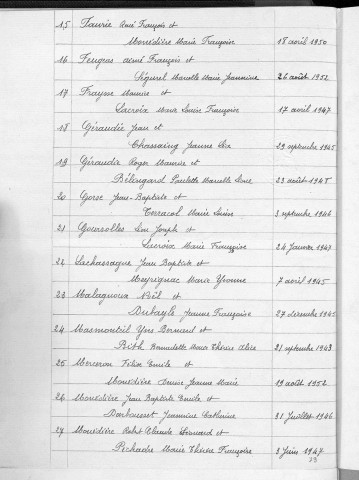 15 Faurie Aimé François et
Monédière Marie Françoise 18 avril 1950
16 Feugeas Aimé François et
Ségurel Marcelle Marie Jeannine 26 août 1952
17 Fraysse Maurice et
Lacroix Marie Louise Françoise 17 avril 1947
18 Géraudie Jean et
Chassaing Jeanne 29 septembre 1945
19 Géraudie Roger Maurice et
Bélingard Paulette Marcelle 23 août 1948
20 Gorse Jean-Baptiste et
Terracol Marie Louise 3 septembre 1946
21 Léon Joseph et
Lacroix Marie Françoise 24 janvier 1947
22 Lachassagne Jean Baptiste et
Meyrignac Marie Yvonne 7 avril 1945
23 Malagnoux Noël et
Dubayle Jeanne Françoise 27 décembre 1945
24 Marmonteil Yves Bernard et
Bernadette Marie Thérèse Alice 21 septembre 1943
25 Merceron Félix Emile et
Monédière Denise Jeanne Marie 19 août 1952
26 Monédière Jean Baptiste Emile et
Jeannine Catherine 31 juillet 1946
27 Monédière Robert Claude Bernard et
Pechadre Marie Thérèse Françoise 3 juin 1947